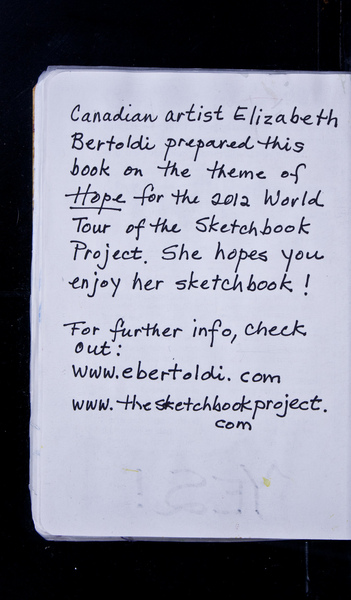 Canadian artist Elizabeth
Bertoldi prepared this
book on the theme of
Hope for the 2012 World
Tour of the Sketchbook
Project. She hopes you
enjoy her sketchbook!
For further info, check
out:
www.ebertoldi.com
www.thesketchbookproject.
com
YES!